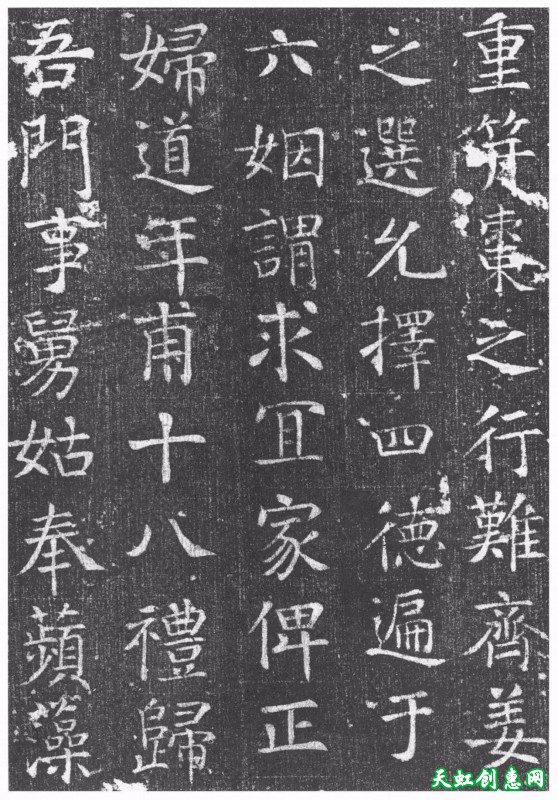 重棗之行難齊姜
之選允擇四德遍于
六姻謂求宜家俾正
婦道年甫十八禮歸
吾門事舅姑奉蘋藻
天虹创惠网